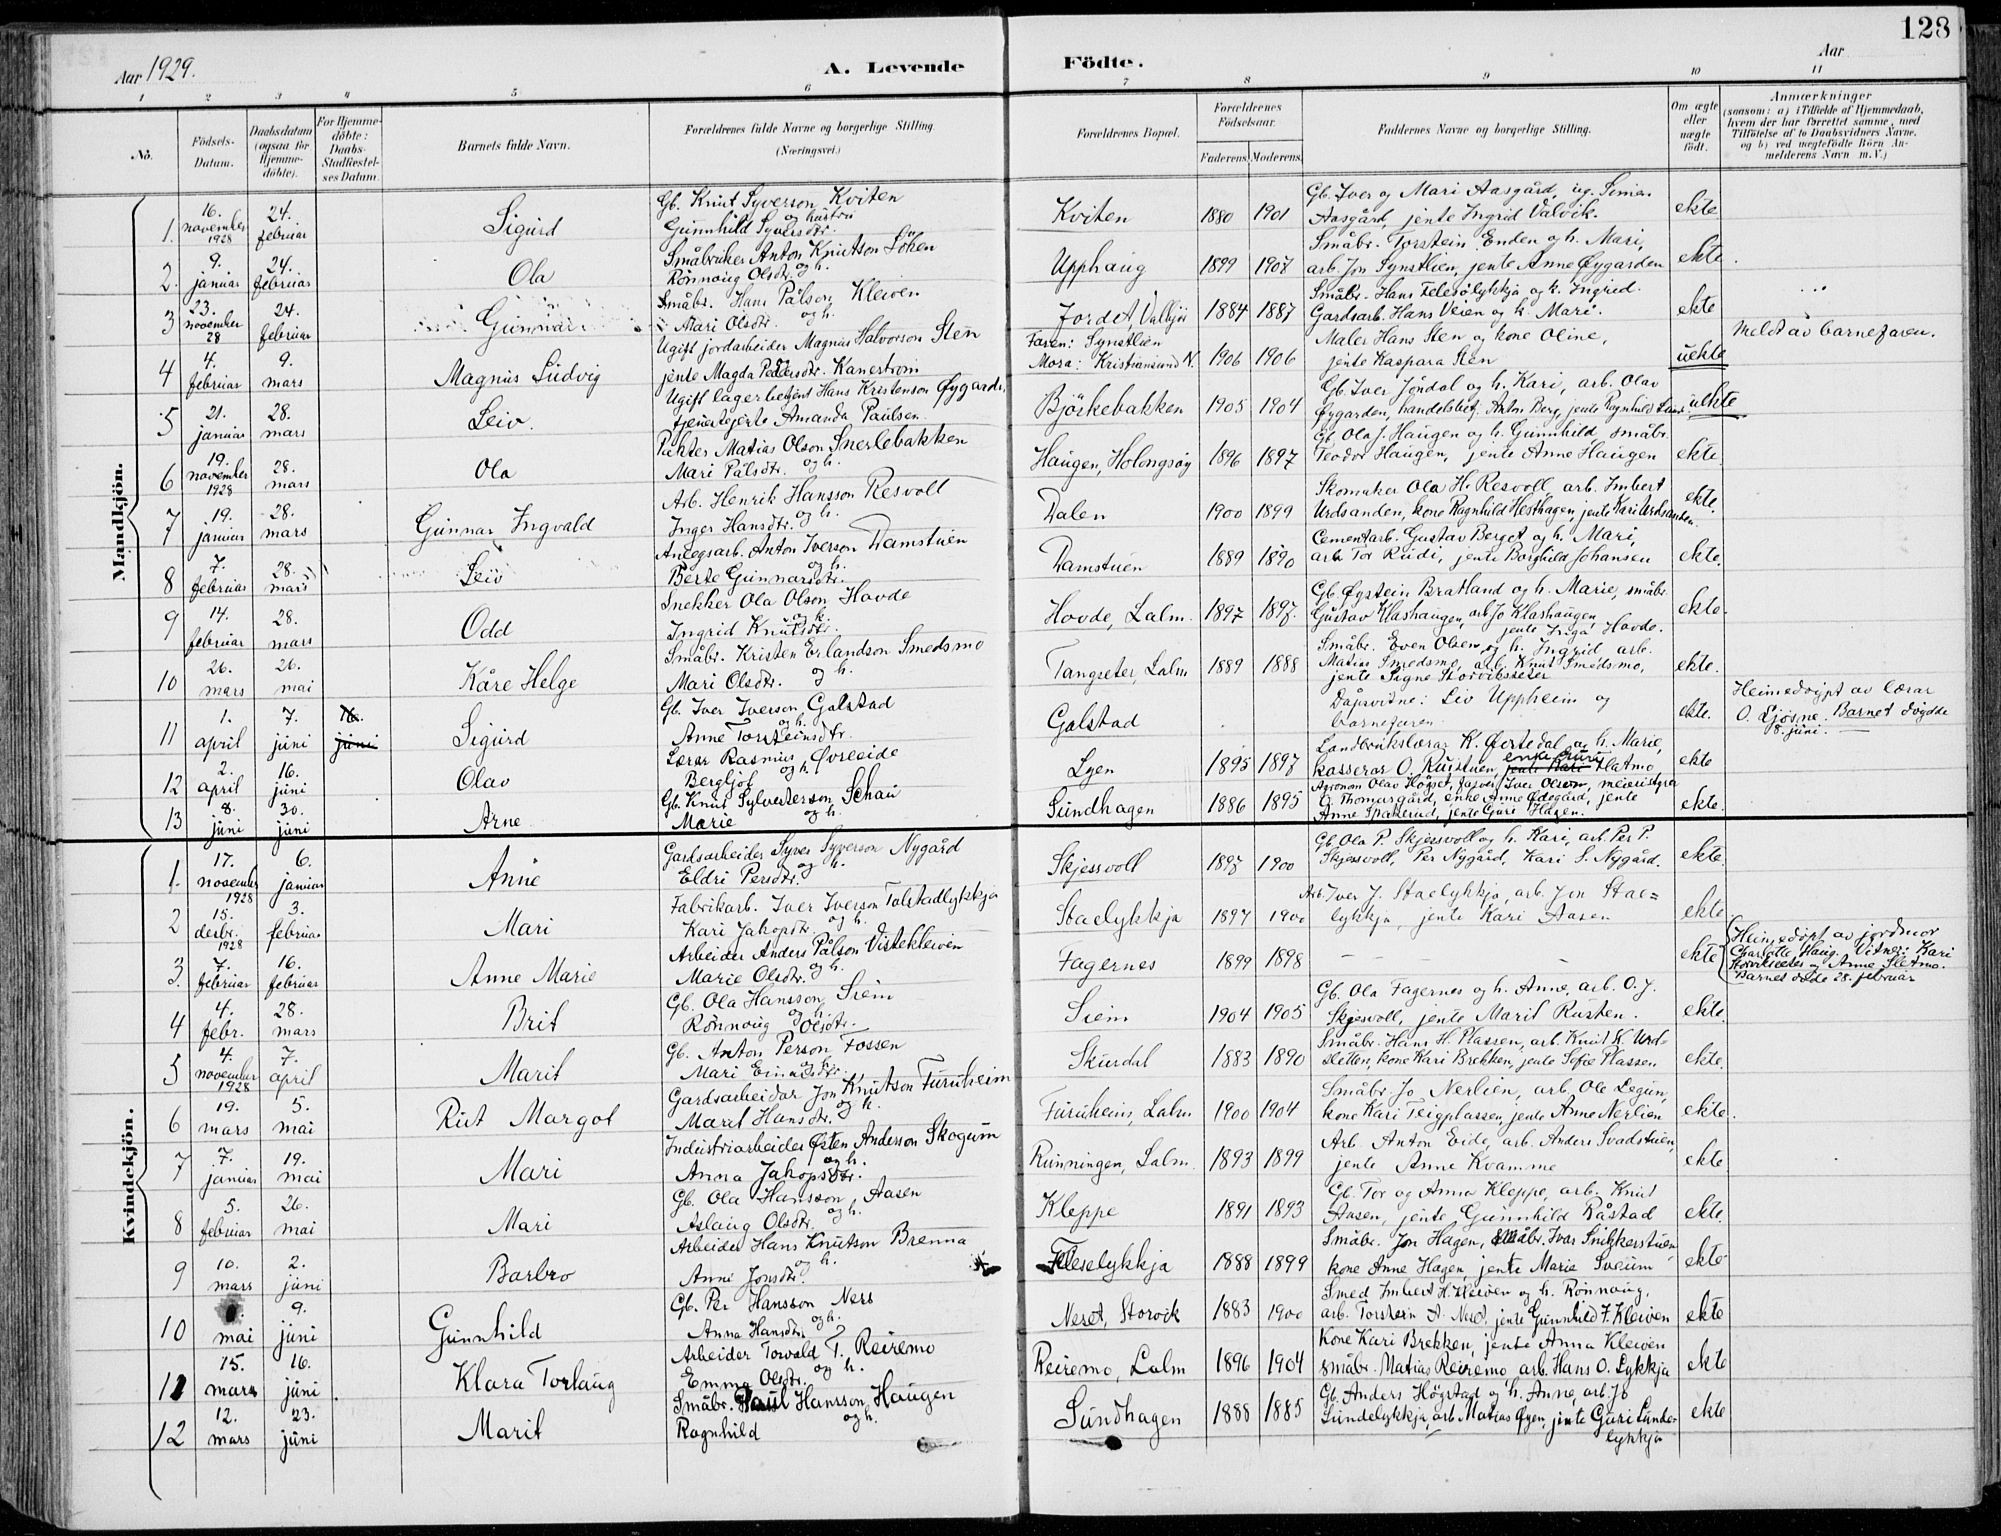 128
Aar 1929.
A. Levende Födte.
Aar
1 2 3 4 5 6 7 8 9 10 11
No.
Födsels-Datum.
Daabsdatum (ogsaa for Hjemme-döbte).
For Hjemme-döbte: Daabs-Stadfæstel-ses Datum.
Barnets fulde Navn.
Forældrenes fulde Navne og borgerlige Stilling. (Næringsvei.)
Forældrenes Bopæl.
Forældrenes Födselsaar.
Faderens. Moderens.
Faddernes Navne og borgerlige Stilling.
Om ægte eller uægte födt.
Anmærkninger
(saasom: a) i Tilfælde af Hjemmedaab, hvem der har forrettet samme, med Tilföielse af to Daabsvidners Navne, og b) ved uægtefödte Börn An-melderens Navn m.V.)
Mandkjön.
1. 16. november 1928 24. februar Sigurd Gb. Knut Syverson Kviten og hustru Gunnhild Syversdtr. Kviten 1880 1901 Gb. Iver og Mari Aasgård, Aasgård, jente Ingrid Valvik. ekte
2. 9. januar 24. februar Ola Småbruker Anton Knutson Löken og h. Rönnaug Olsdtr. Upphaug 1899 1907 Småbr. Torstein Enden og h. Mari, arb. Jon Synstlien, jente Anne Øygarden ekte.
3 23. november 28 24. februar Gunnar Småbr. Hans Pålson Kleiven og h. Mari Olsdtr. Jordet, 1884 1887 Småbr. Hans og h. Ingrid. Gardsarb. Hans Veien og h. Mari. ekte
4 4. februar 9. mars Magnus Ludvig Ugift jordarbeider Magnus Halvorson Sten og jente Magda Pedersdtr. Kanestrøm Faren: Synstlien Mora: Kristiansund N. 1906 1906 Maler Hans Sten og kone Oline, jente Kaspara Sten uekte Meldt av barnefaren.
5 21. januar 28. mars Leiv. Ugift lagerbetjent Hans Kristenson Øygarden, tjenestejente Amanda Paulsen. Björkebakken 1905 1904 Gb. Iver Jöndal og h. Kari, arb. Olav Øygarden, handelsbetj. Anton Berg, jente Ragnhild uekte
6 19. november 1928 28. mars Ola Matias Olson Snerlebakken og h. Mari Pålsdtr. Haugen, Holongsöy 1896 1897 Gb. Ola J. Haugen og h. Gunnhild, småbr. Teodor Haugen, jente Anne Haugen ekte.
7 19. januar 28. mars Gunnar Ingvald Arb. Henrik Hansson Resvoll og h. Inger Hansdtr. Dalen 1900 1899 Skomaker Ola H. Resvoll arb. Imbert Urdsanden, kone Ragnhild Hesthagen, jente Kari Urdsanden. ekte.
8 7. februar 28. mars Leiv Anlegsarb. Anton Iverson Damstuen og h. Berte Gunnarsdtr. Damstuen 1889 1890 Cementarb. Gustav Berget og h. Mari, arb. Tor Rudi, jente Borghild Johansen ekte.
9 14. februar 28. mars Odd Snekker Ola Olson Hovde og h. Ingrid Knutsdtr. Hovde, Lalm. 1897 1897. Gb. Øystein Bratland og h. Marie, småbr. Gustav Klashaugen, arb. Jo Klashaugen, jente Inga Hovde. ekte.
10 26. mars 26. mai Kåre Helge Småbr. Kristen Erlandson Smedsmo og h. Mari Olsdtr. Tangseter, Lalm 1889 1888 Småbr. Even Olsen og h. Ingrid arb. Matias Smedsmo, arb. Knut Smedsmo, jente Signe ekte.
11 1. april 7. juni 16. juni Sigurd Gb. Iver Iverson Galstad og h. Anne Torsteinsdtr. Galstad Dåpsvitne: Liv Uppheim og barnefaren. ekte. Heimedöypt av lærar O. Ljösne. Barnet döydde 8. juni.
12 2. april 16. juni Olav Lærar Rasmus Øvreeide og h. Bergljot Lyen 1895 1897 Landbrukslærar K. Ørstedal og h. Marie, kasserar O. Rustuen, jente Kari enke Guri Slatmo ekte
13 8. juni 30. juni Arne Gb. Knut Sylvesterson Schau og h. Marie Sundhagen 1886 1895 Agronom Olav Högset, Iver Olsen, meieristyrer O. Thomasgård, enke Anne Ødegård, jente Anne jente Guri Hagen. ekte.
Kvindekjön.
1. 17. november 1928 6. januar Anne Gardsarbeider Syver Syverson Nygård og h. Eldri Persdtr. Skjesvoll 1897 1900 Gb. Ola P. Skjessvoll og h. Kari, arb. Per P. Skjessvoll, Per Nygård, Kari S. Nygård. ekte.
2 15. desbr. 1928 3. februar Mari Fabrikarb. Iver Iverson Tolstadlykkja og h. Kari Jakopsdtr. Staelykkja 1897 1900 Arb. Iver J. Staelykkja, arb. Jon Stae=lykkja, jente Kari Aasen ekte
3. 7. februar 16. februar Anne Marie Arbeider Anders Pålson Vistekleiven og h. Marie Olsdtr. Fagernes 1899 1898 – – – ekte Heimedöpt av jordmor Charlotte Haug. Vitner: Kari og Anne Sletmo. Barnet döde 28. februar
4 4. febr. 28. mars Brit Gb. Ola Hansson Siem og h. Rönnaug Olsdtr. Siem 1904 1905 Gb. Ola Fagernes og h. Anne, arb. O. J. Skjesvoll, jente Marit Rusten. ekte.
5 4. november 1928 7. april Marit Gb. Anton Person Fossen og h. Mari Einarsdtr. Skurdal 1883 1890 Småbr. Hans H. Plassen, arb. Knut K. Urd-sletten, kone Kari Brekken, jente Sofie Plassen ekte.
6 19. mars 5. mai Rut Margot Gardsarbeidar Jon Knutson Furuheim og h. Marit Hansdtr. Furuheim, Lalm 1900 1904 Småbr. Jo Nerlien, arb. Ole kone Kari Teigplassen, jente Anne Nerlien ekte.
7 7. januar 19. mai Mari Industriarbeider Østen Anderson Skogum og h. Anna Jakopsdtr. Runningen, Lalm. 1893 1899 Arb. Anton Eide, arb. Anders Svadstuen, jente Anne Kvamme ekte
8 5. februar 26. mai Mari Gb. Ola Hansson Aasen og h. Aslaug Olsdtr. Kleppe 1891 1893 Gb. Tor og Anna Kleppe, arb. Knut Aasen, jente Gunnhild Råstad ekte.
9 10. mars 2. juni Barbro Arbeider Hans Knutson Brenna og h. Anne Jonsdtr. Feleselykkja 1888 1899 Småbr. Jon Hagen, småbr. Ivar Snikkerstuen kone Anne Hagen, jente Marie Sveum ekte
10 mai 9. juni Gunnhild Gb. Per Hansson Ners og h. Anna Hansdtr Neret, Storvik 1883 1900 Smed Imbert H. Kleiven og h. Rönnaug, arb. Torstein A. Neret, jente Gunnhild F. Kleiven ekte
11 15. mars 16. juni Klara Torlaug Arbeider Torvald T. Reiremo og h. Emma Olsdtr. Reiremo, Lalm 1896 1904 Kone Kari Brekken, jente Anna Kleiven småbr. Matias Reiremo, arb. Hans O. Lykkja ekte
12 12. mars 23. juni Marit Småbr. Paul Hansson Haugen og h. Ragnhild Sundhagen 1888 1885 Gb. Anders Högstad og h. Anne, arb. Jo Sundelykkja, arb. Matias Øyen, jente Guri Sunde-lykkja ekte